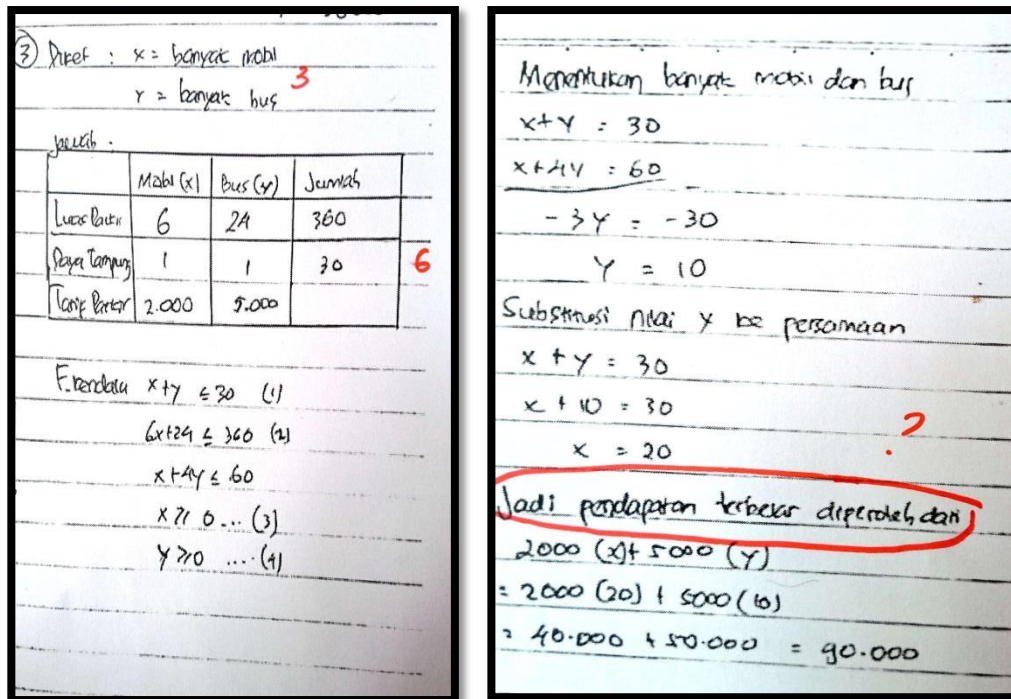 ③ Diket : x = banyak mobil
Y = banyak bus
3
Jawab :
Mobil (x) Bus (y) Jumlah
Luas Parkir 6 24 360
Daya Tampung 1 1 30
6
Tarif Parkir 2.000 5.000
F. kendala x+y ≤ 30 (1)
6x+24 ≤ 360 (2)
x+4y ≤ 60
x ≥ 0 ... (3)
y ≥ 0 .... (4)
Menentukan banyak mobil dan bus
x+Y = 30
x+4Y = 60
-3Y = -30
Y = 10
Substitusi nilai y ke persamaan
x + y = 30
x + 10 = 30
x = 20
?
Jadi pendapatan terbesar diperoleh dari
2000 (x) + 5000 (y)
= 2000 (20) + 5000 (10)
= 40.000 + 50.000 = 90.000